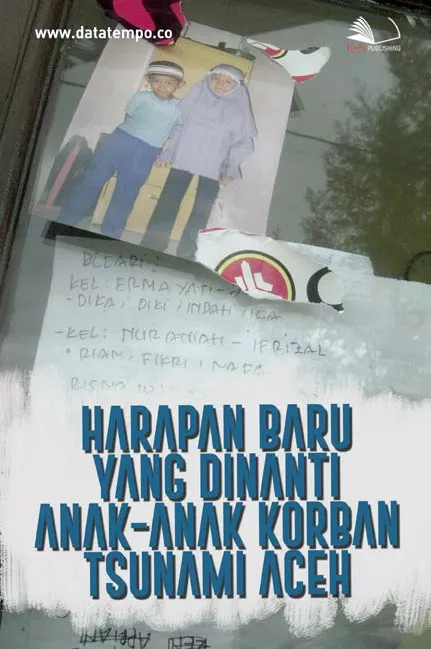 www.datatempo.co
TEMPO PUBLISHING
DICARI :
KEL: ERMAYATI -
- DIKA, DIKI, INDAH, ICA
- KEL: NURANIAH - IFRIZAL
RIAN, FIKRI, NAFA
HARAPAN BARU
YANG DINANTI
ANAK-ANAK KORBAN
TSUNAMI ACEH